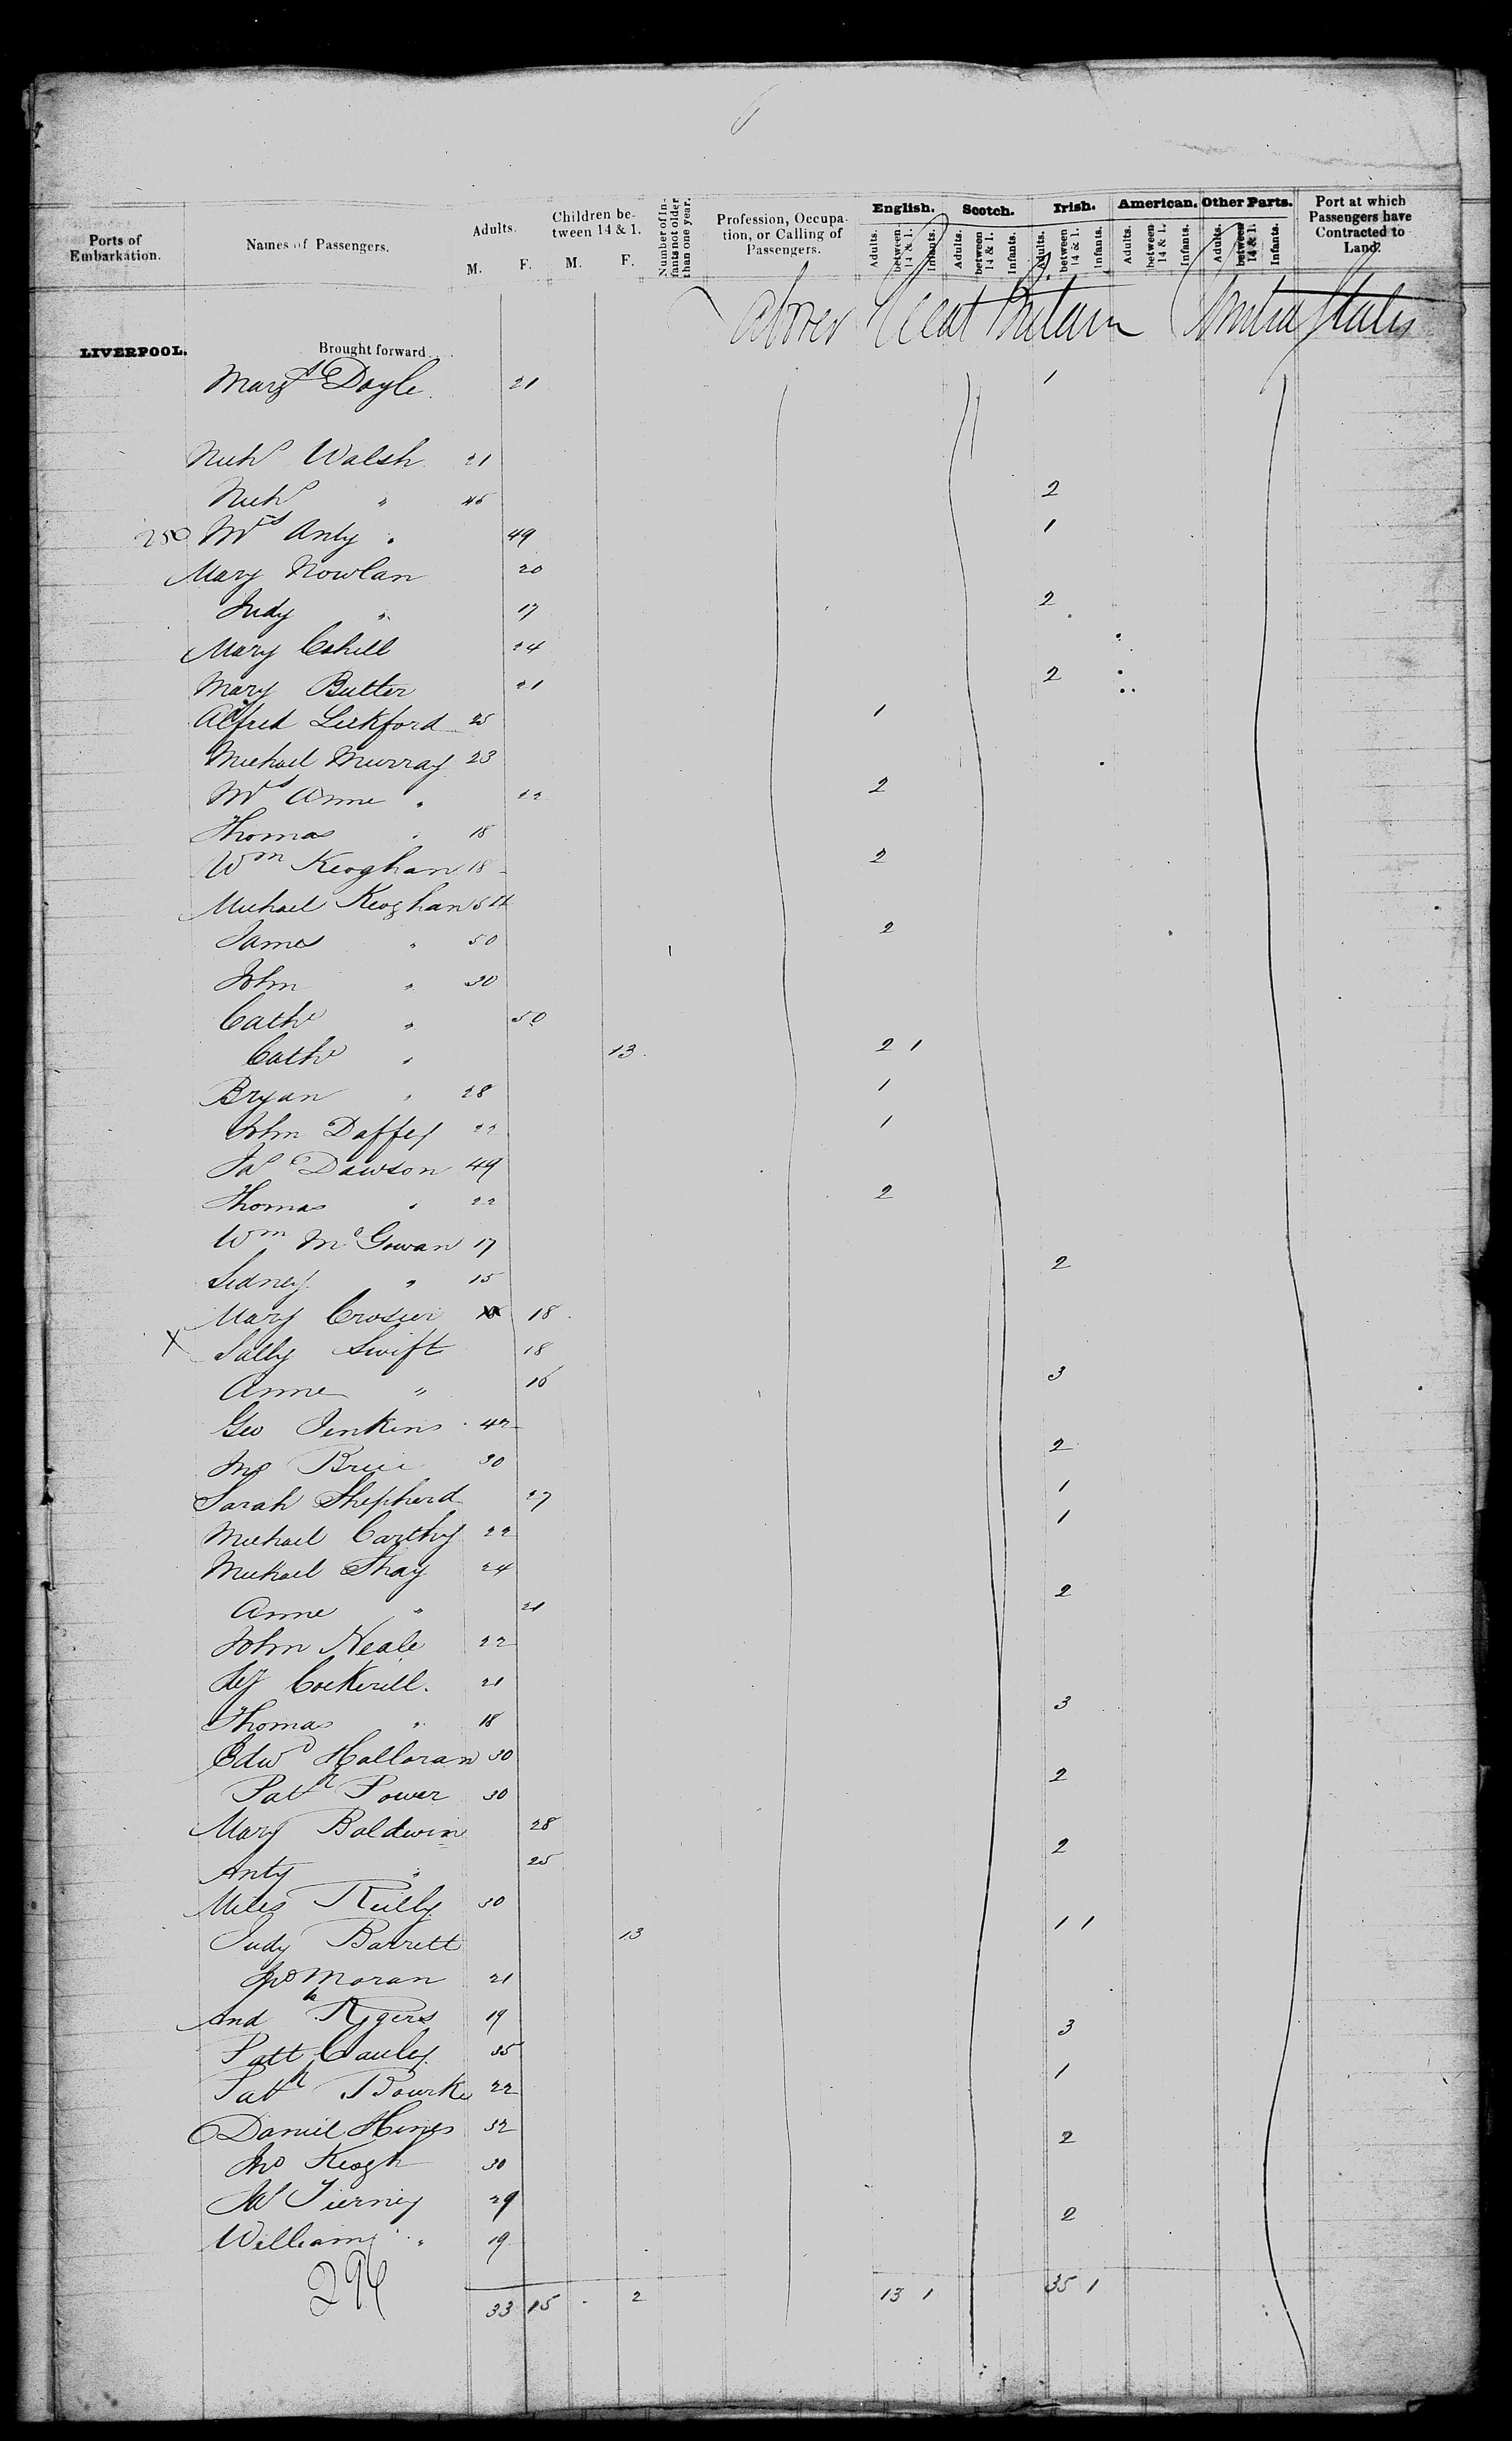 Ports of Embarkation. Names of Passengers. Adults. M. F. Children between 14 & 1. M. F. Number of Infants not older than one year. Profession, Occupation, or Calling of Passengers. English. Adults. between 14 & 1. Infants. Scotch. Adults. between 14 & 1. Infants. Irish. Adults. between 14 & 1. Infants. American. Adults. between 14 & 1. Infants. Other Parts. Adults. between 14 & 1. Infants. Port at which Passengers have Contracted to Land.
Great Britain United States
LIVERPOOL. Brought forward
Margt Doyle 21 1
Nichs Walsh 21
Nichs " 45 2
250 Mrs Anty " 49 1
Mary Nowlan 20
Judy " 17 2
Mary Cahill 24
Mary Butler 21 2
Alfred Leckford 25 1
Michael Murray 23
Mrs Anne " 22 2
Thomas " 18
Wm Keoghan 18 2
Michael Keoghan 54
James " 50 2
John " 30
Cathe " 50
Cathe " 13 2 1
Bryan " 28 1
John Daffey 22 1
Jas Dawson 49
Thomas " 22 2
Wm McGowan 17
Sidney " 15 2
Mary Crosier 18
X Sally Swift 18
Anne " 16 3
Geo Jenkins 42
Jno Brice 30 2
Sarah Shepherd 27 1
Michael Carthy 22 1
Michael Shay 24
Anne " 21 2
John Neale 22
Hy Cockerill 21
Thomas " 18 3
Edwd Halloran 30
Patk Power 30 2
Mary Baldwin 28
Anty " 25 2
Miles Reilly 30
Judy Barrett 13 1 1
Jno Moran 21
And Rogers 19 3
Patt Cauley 35
Patk Bourke 22 1
Daniel Hines 32
Jno Keogh 30 2
Jas Tierney 29
William " 19 2
296
33 15 2 13 1 35 1